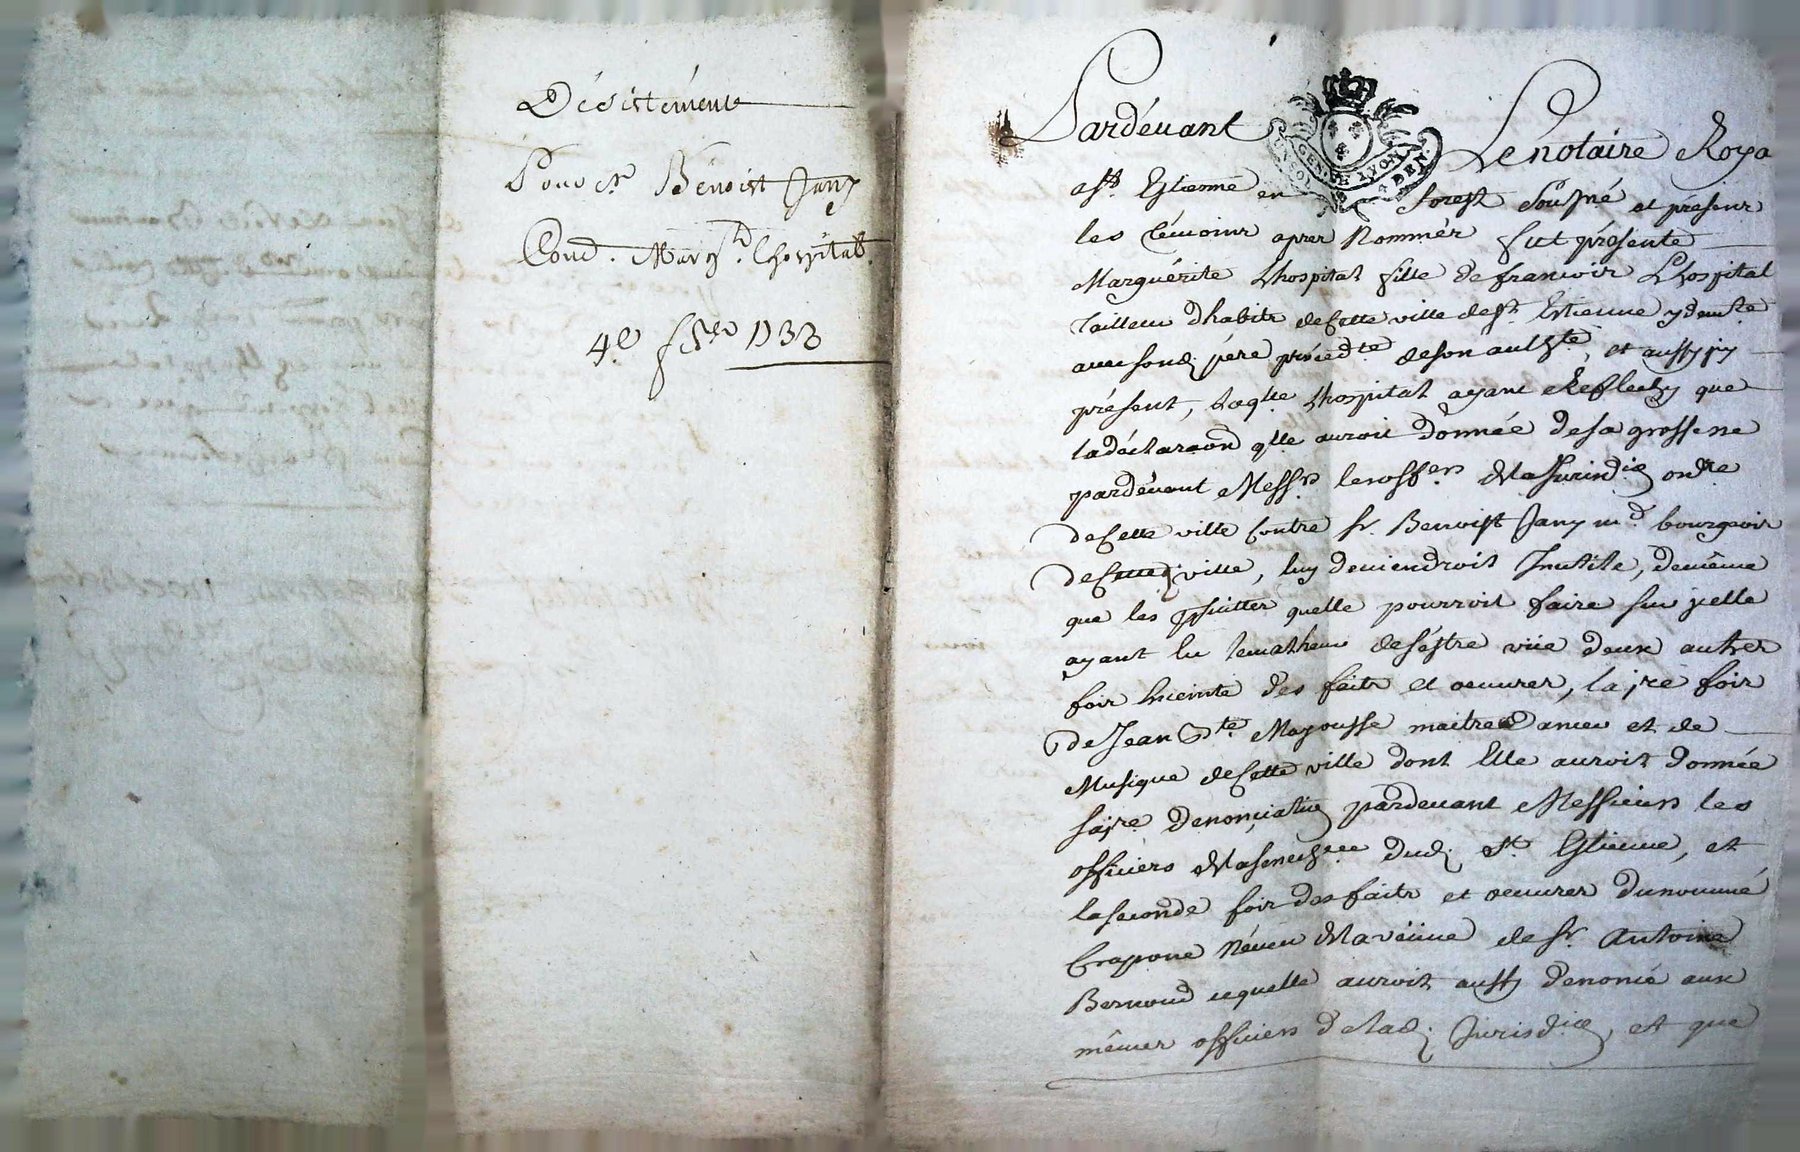 Désistement
Pour sr. Bénoist Jany
Cont. Margte. Lhospital.
4e. fbre 1733
Pardevant Le notaire Roya
a St. Estienne en forest Sousné et présent
les témoins apres Nommés fut présente
Marguérite Lhospital fille de francois Lhospital
tailleur dhabits de Cette ville de St. Estienne y demte
avec sond. pere procedte de son authte, et aussy jcy
présent, Laqlle Lhospital ayant Reflechy que
la déclaraon qlle auroit donnée de sa grossesse
pardevant Messrs. les offers. de la Jurisdion ordre
de Cette ville Contre sr. Benoist Jany md. bourgeois
de Cette ville, luy deviendroit Inutile, de même
que les psuittes quelle pourroit faire sur jcelle
ayant eu le malheur de sestre vüe deux autres
fois Enceinte des faits et oeuvres, la 1re fois
de Jean Bte. Mayousse maitre a dancer et de
Musique de Cette ville dont Elle auroit donnée
sa 1re denonciation pardevant Messieurs les
officiers de la senechée dud. St. Estienne, et
la seconde fois des faits et oeuvres du nommé
Crapone Néveu de la veüve de sr. Antoine
Bernoud cequelle auroit aussy denoncé aux
mêmes officiers de lad. Jurisdion, et que
GEN. DE LYON